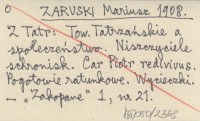 0 ZARUSKI Mariusz 1908.
Z Tatr: Tow. Tatrzańskie a
społeczeństwo. Niszczyciele
schronisk. Car Piotr redivivus.
Pogotowie ratunkowe. Wycieczki.
– "Zakopane" 1, nr 21.